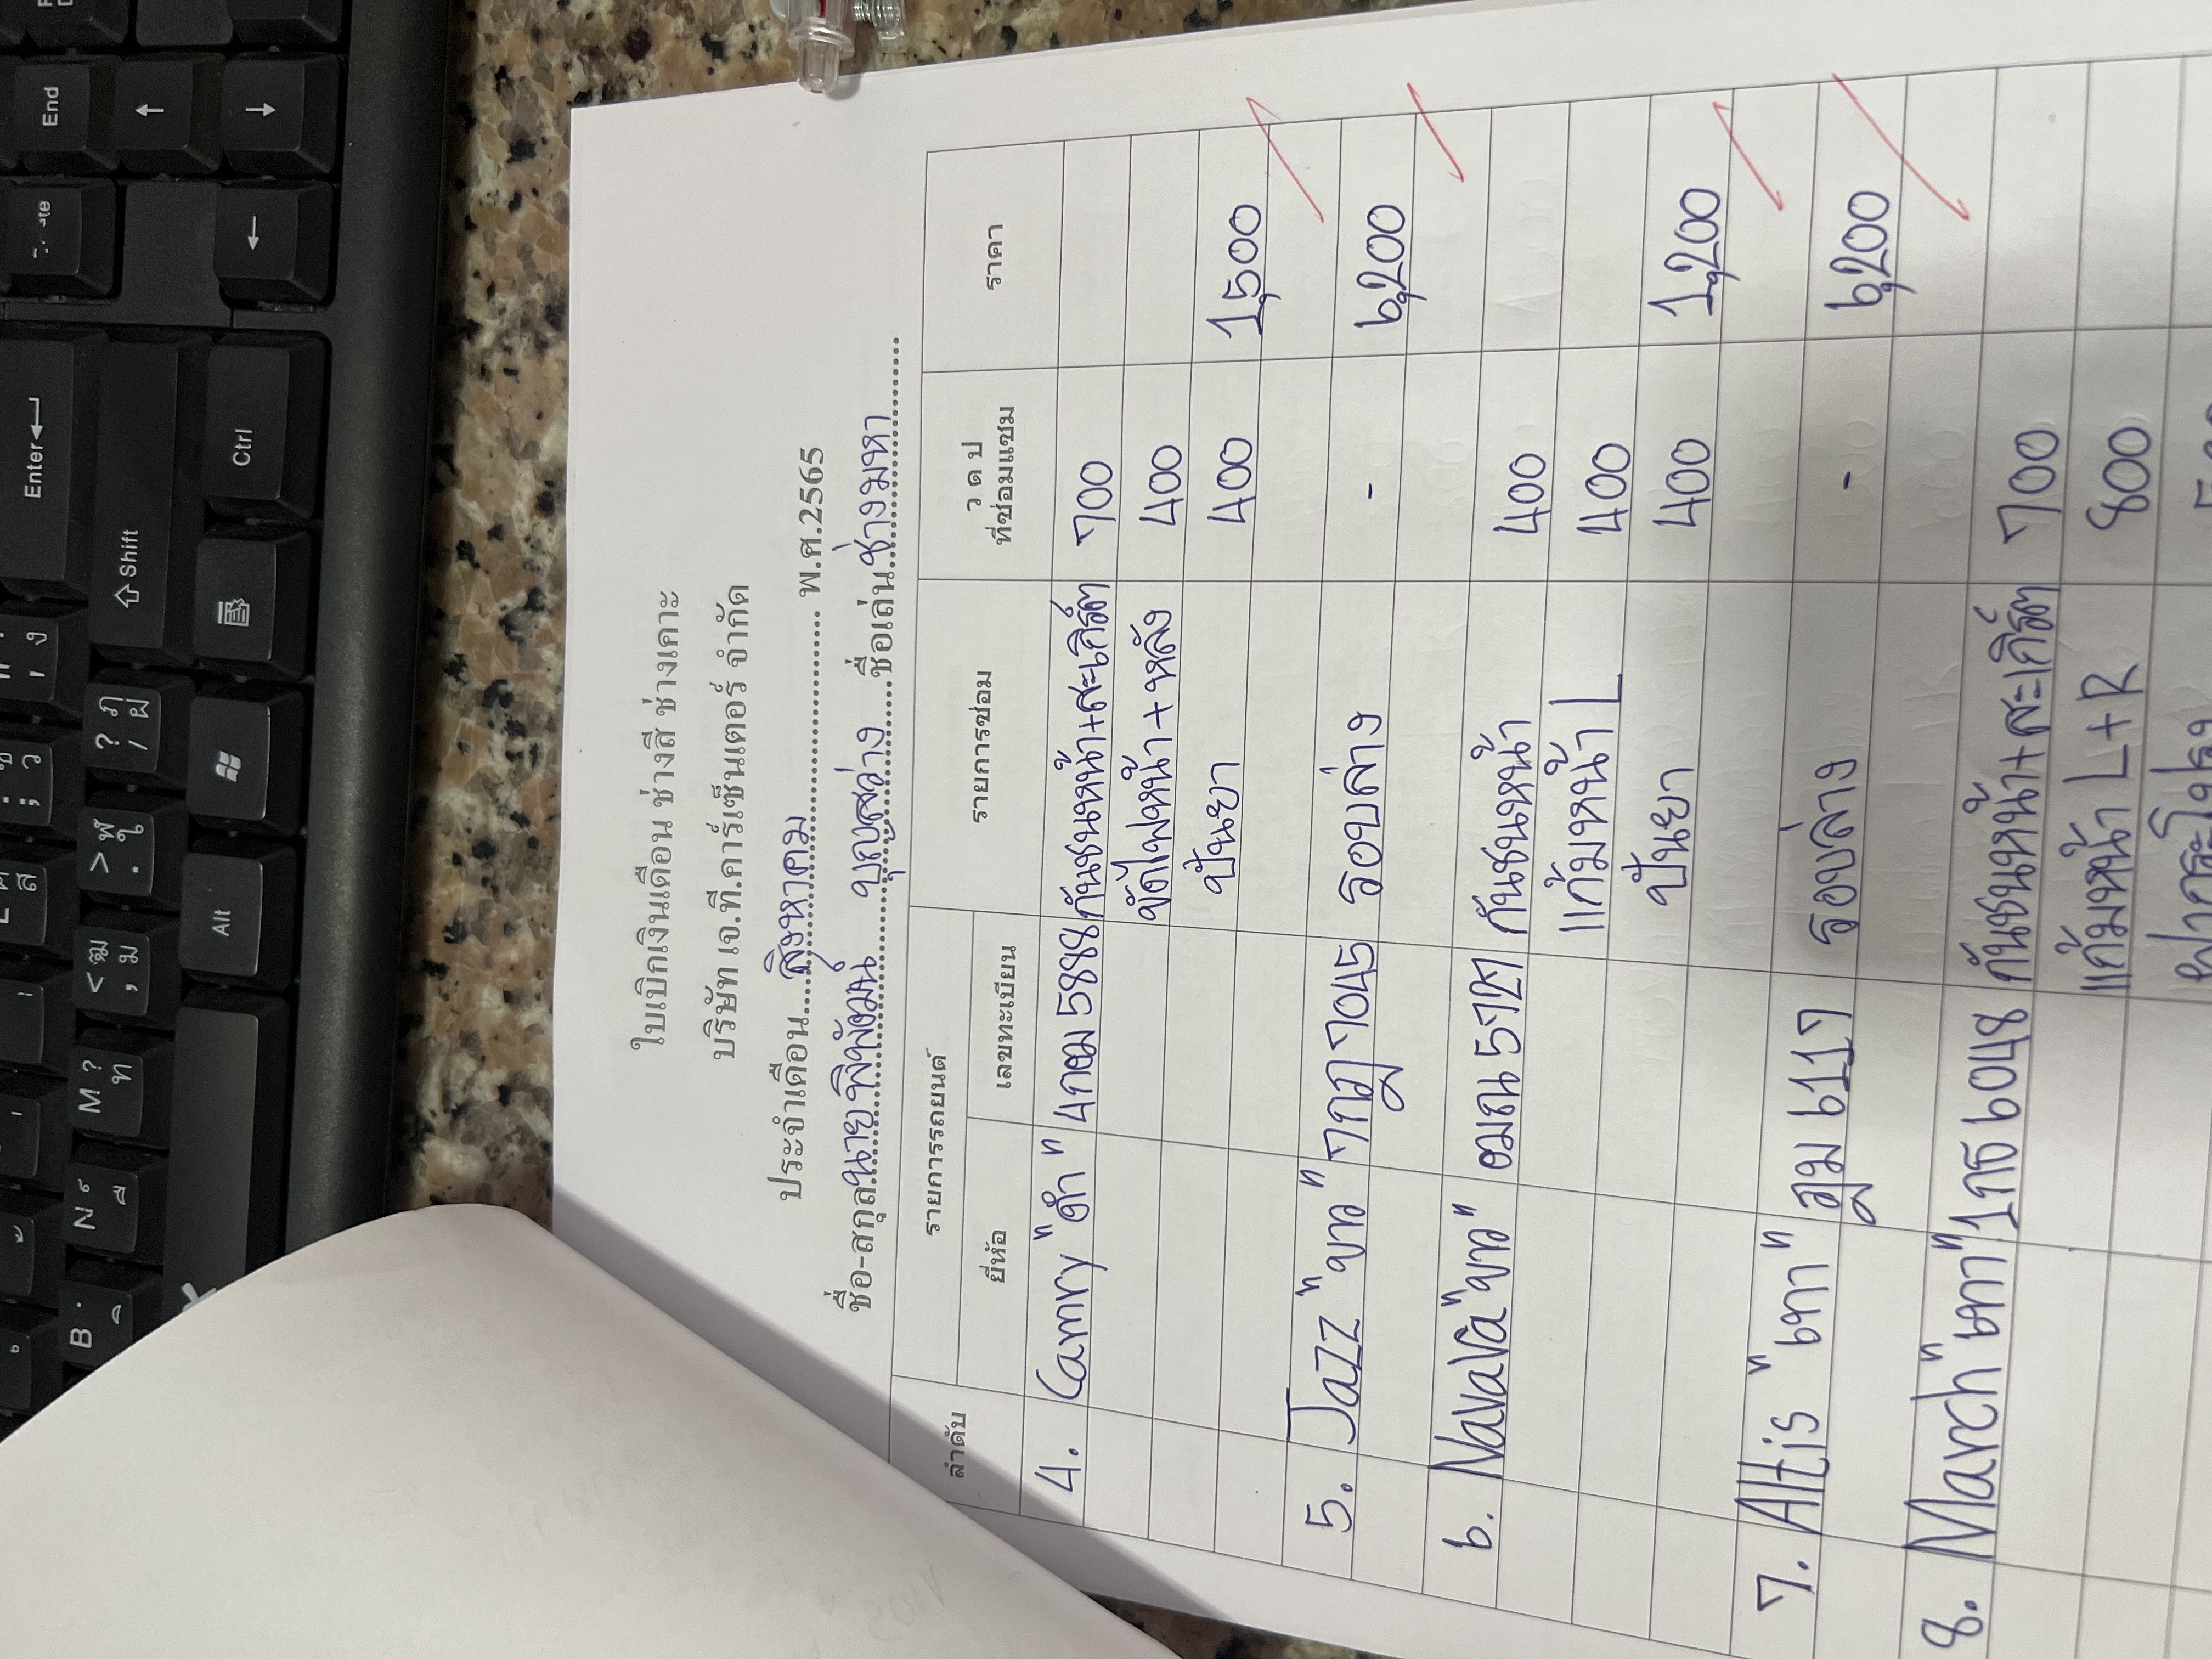 ใบเบิกเงินเดือน ช่างสี ช่างเคาะ
บริษัท เจ.ที.คาร์เซ็นเตอร์ จำกัด
ประจำเดือน...สิงหาคม... พ.ศ.2565
ชื่อ-สกุล นายพิพัฒน์ บุญสว่าง ชื่อเล่น ช่างมหา
ลำดับ รายการรถยนต์ รายการซ่อม ว ด ป ที่ซ่อมแซม ราคา
ยี่ห้อ เลขทะเบียน
4. Camry "ดำ" 4กฮม 5888 กันชนหน้า+สะเกิร์ต 700
ขัดไฟหน้า+หลัง 400
ปั่นยา 400 1,500
5. Jazz "ขาว" 7กฎ 7045 รอบล่าง - 6,200
6. Navara "ขาว" ฒณ กันชนหน้า 400
แก้มหน้า L 400
ปั่นยา 400 1,200
7. Altis "เทา" ฎม 6117 รอบล่าง - 6,200
8. March "เทา" 1กธ 6048 กันชนหน้า+สะเกิร์ต 700
แก้มหน้า L+R 800
ฝากระโปรง
End
Enter
Shift
Ctrl
Alt
M ? ท
N
B